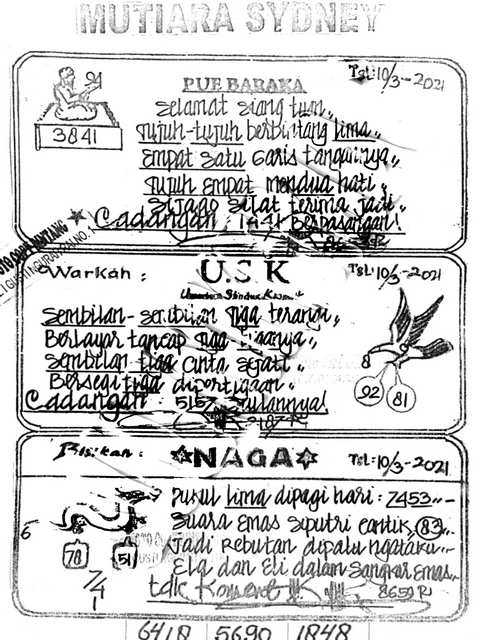 MUTIARA SYDNEY
94
3841
PUE BARAKA
Tgl: 10/3-2021
Selamat siang tuan,,
Tujuh-tujuh berbintang lima,,
Empat satu garis tangannya,,
Tujuh empat mendua hati,,
Sijago silat terima jadi
Cadangan : 1441 Berpasangan!
Warkah :
U.S.K
Tgl: 10/3-2021
Sembilan-sembilan tiga terangi,,
Berlayar tancap tiga tiganya,,
Sembilan tiga cinta sejati,,
Bersegi tiga dipertigaan,,
Cadangan : 5157
8
92
81
Bisikan :
NAGA
Tgl: 10/3-2021
Pukul lima dipagi hari : 7453,,-
Suara emas siputri cantik, 83,,-
Jadi rebutan dipalu
Ela dan Eli dalam sangkar emas,,
tdk Koment !!!
8659 RJ
6
78
51
7/4
1
6418 5690 1848